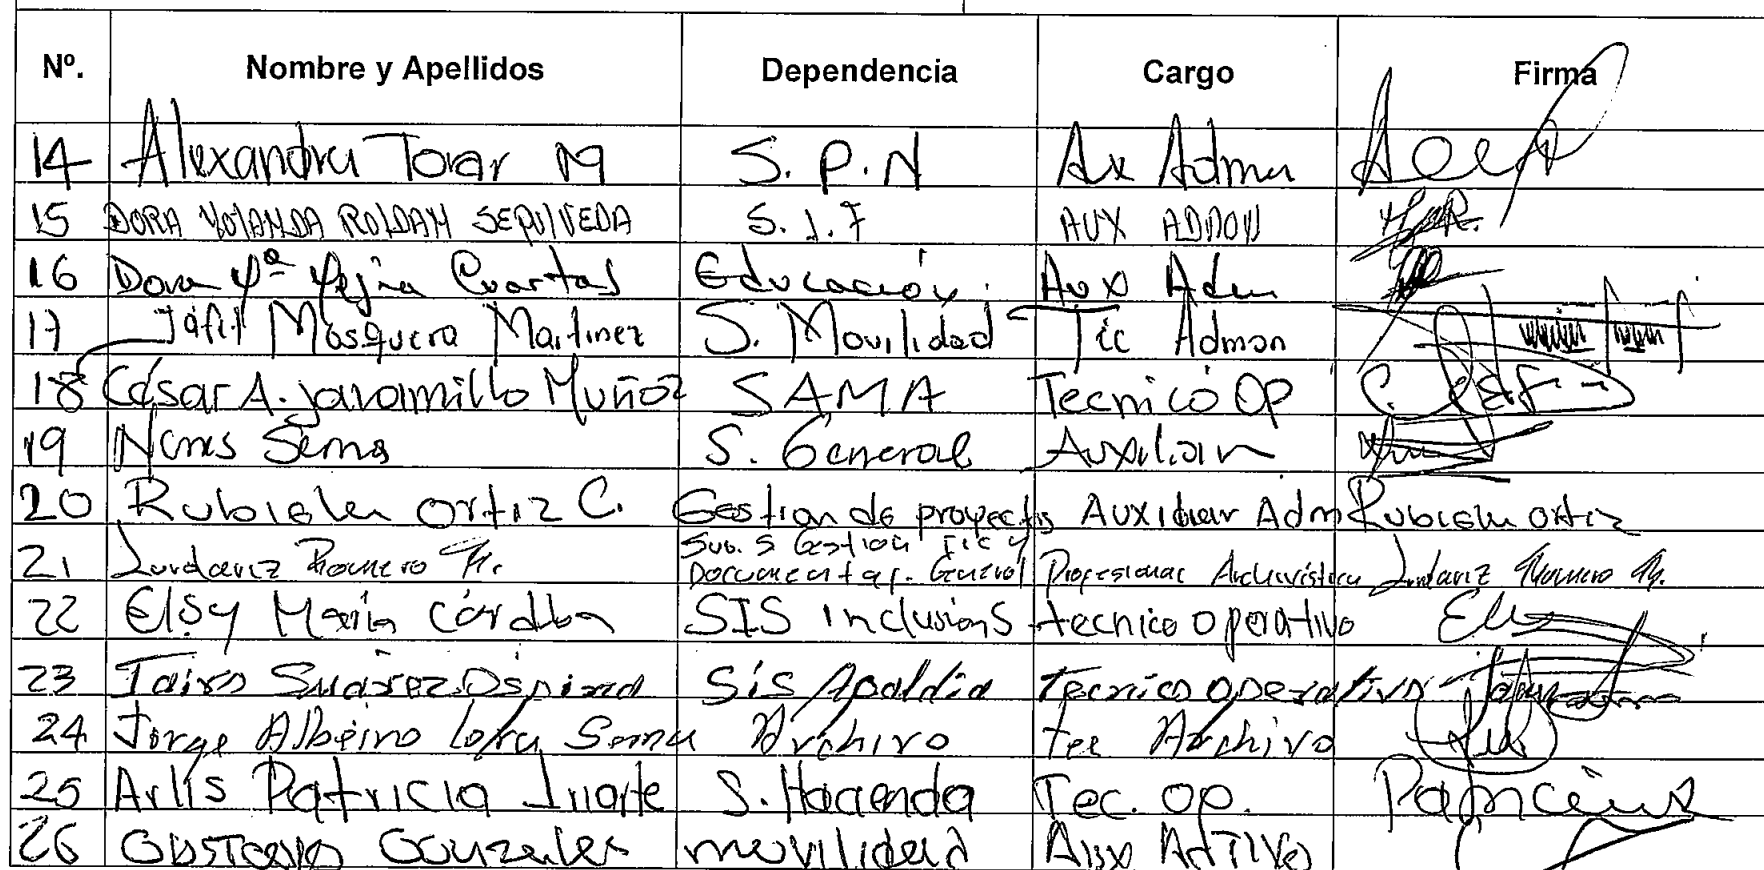 Nº. Nombre y Apellidos Dependencia Cargo Firma
14 Alexandra Tovar M S. P. N Ax Admu
15 DORA YOLANDA ROLDAN SEPULVEDA S. I. F AUX ADMON
16 Dora Mª Mejia Cuartas Educación. Aux Adm
17 Jafit Mosquera Martinez S. Movilidad Tic Admon
18 César A. Jaramillo Muñoz SAMA Tecnico Op
19 Serna S. General Auxiliar
20 Rubiela Ortiz C. Gestion de proyectos Auxiliar Adm Rubiela Ortiz
21 Romero Sub. S Gestion TIC y
Documental. General Profesional Archivística Romero
22 Elsy María Córdoba SIS Inclusión S tecnico operativo
23 Jairo Suárez Ospina Sis Tecnico operativo
24 Jorge Albeiro Serna Archivo Tec Archivo
25 Arlis Patricia Iriarte S. Hacienda Tec. Op.
26 Gustavo Gonzalez movilidad Aux